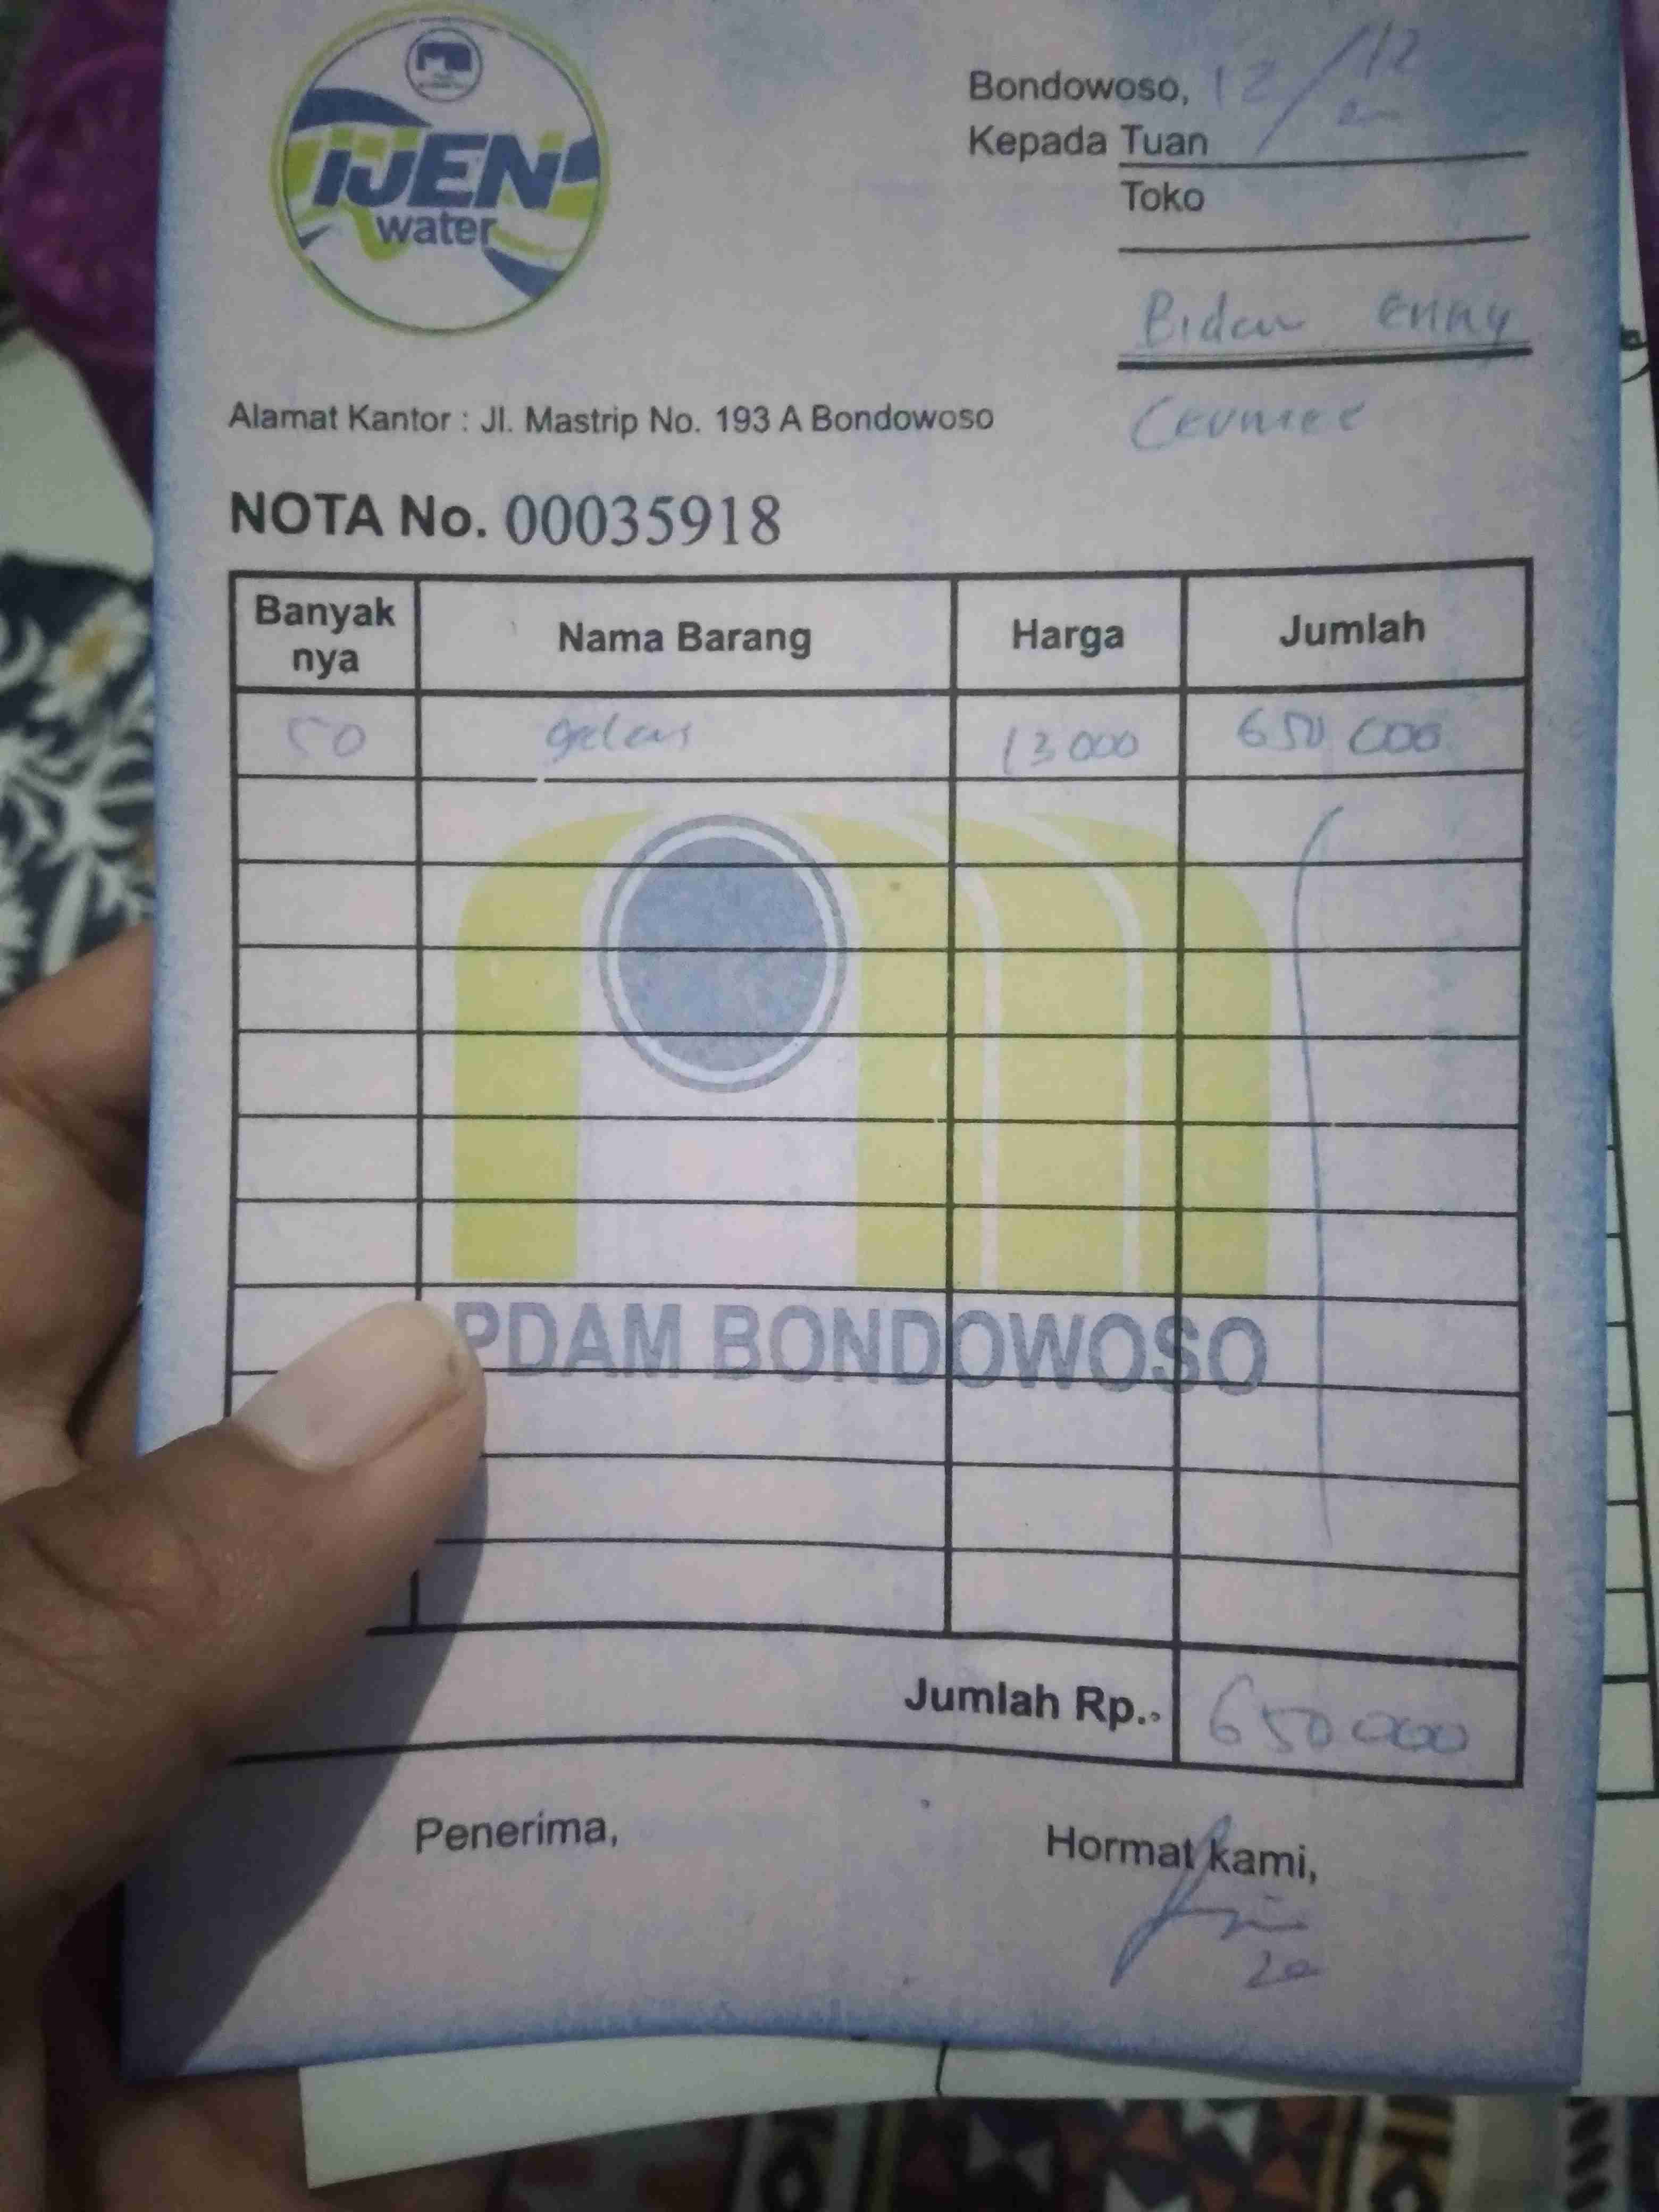 IJEN
water
Bondowoso, 12/12
Kepada Tuan
Toko
Bidan Enny
Cermee
Alamat Kantor : Jl. Mastrip No. 193 A Bondowoso
NOTA No. 00035918
Banyak nya Nama Barang Harga Jumlah
50 gelas 13 000 650 000
PDAM BONDOWOSO
Jumlah Rp.. 650 000
Penerima, Hormat kami,